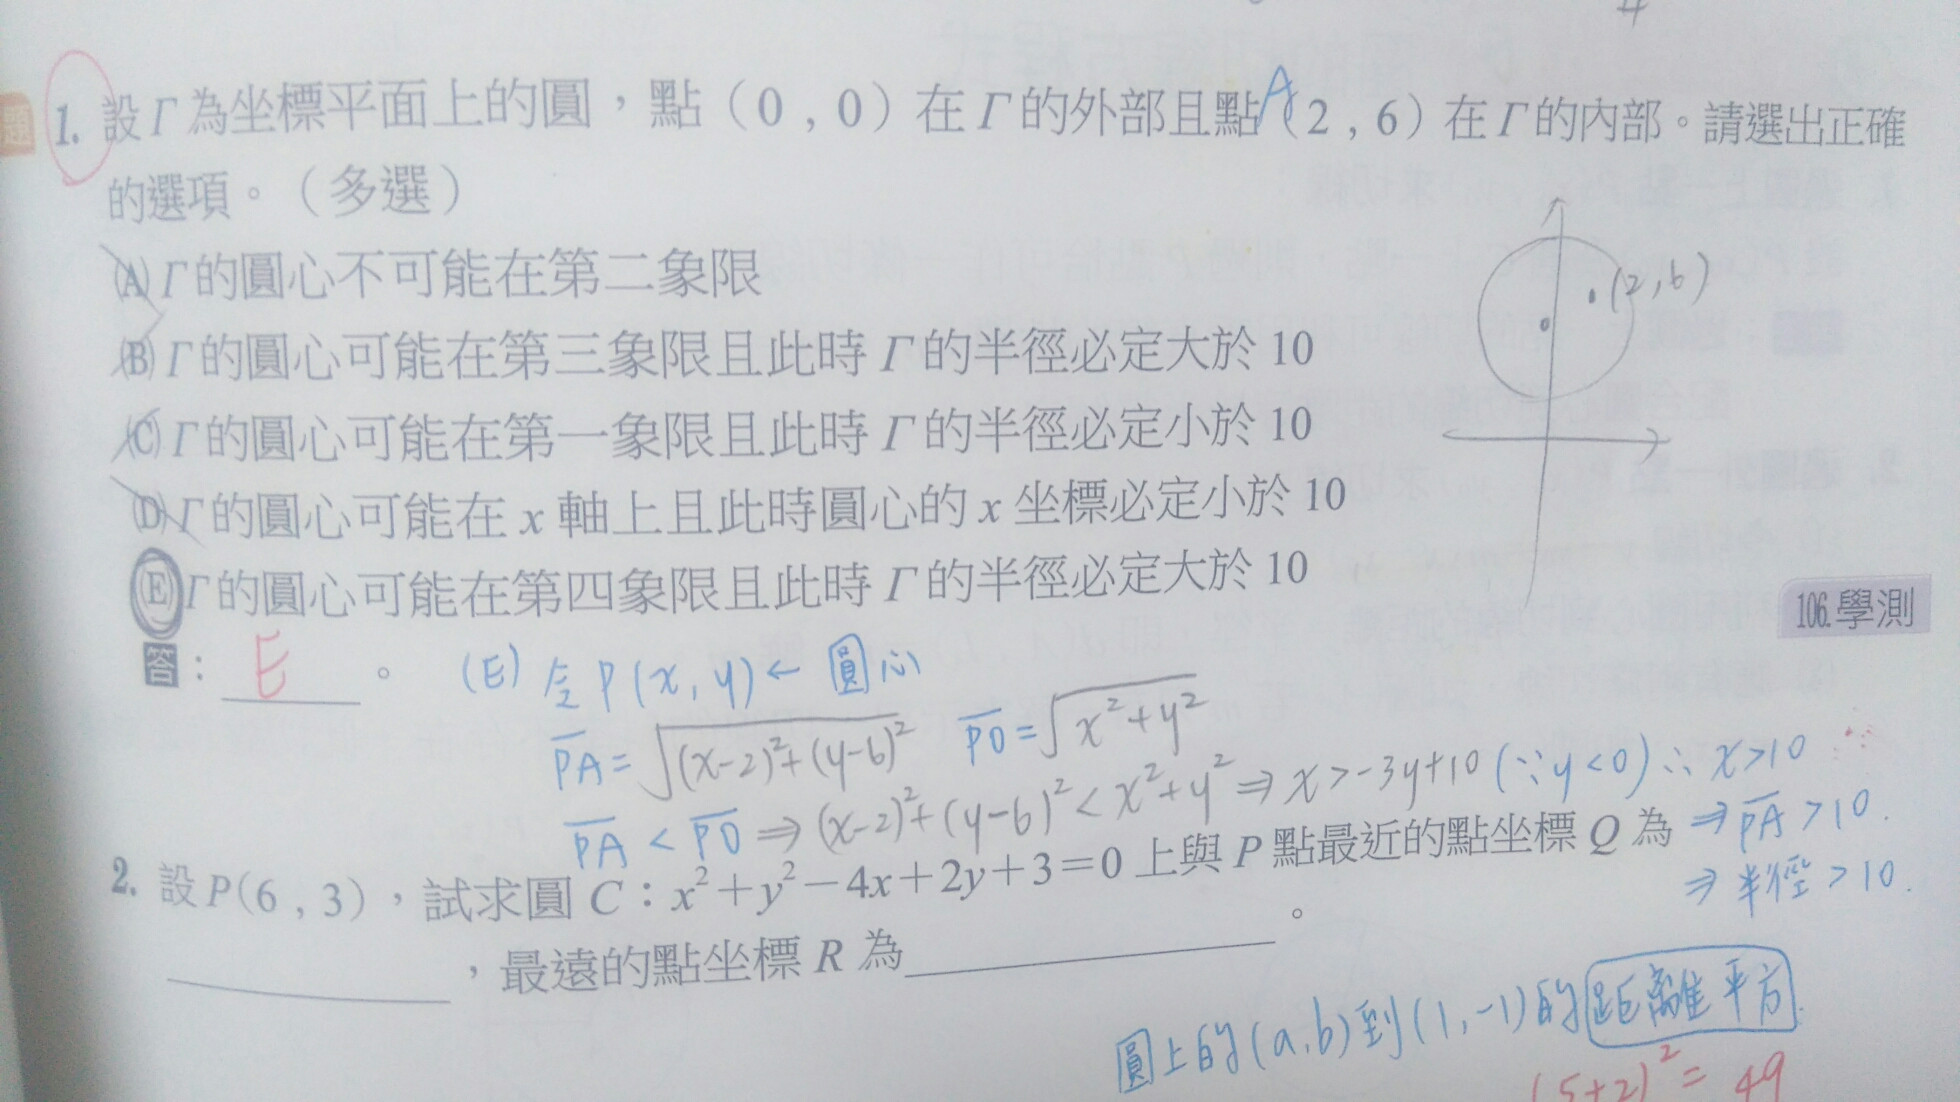 4
題 1. 設Γ為坐標平面上的圓，點（0，0）在Γ的外部且點A（2，6）在Γ的內部。請選出正確
的選項。（多選）
(A) Γ的圓心不可能在第二象限
(2,6)
(B) Γ的圓心可能在第三象限且此時Γ的半徑必定大於 10
(C) Γ的圓心可能在第一象限且此時Γ的半徑必定小於 10
(D) Γ的圓心可能在 x 軸上且此時圓心的 x 坐標必定小於 10
(E) Γ的圓心可能在第四象限且此時Γ的半徑必定大於 10
106.學測
答：E。 (E) 令P(x,y)← 圓心
PA=√(x-2)²+(y-6)² PO=√x²+y²
PA<PO⇒(x-2)²+(y-6)²<x²+y²⇒x>-3y+10(∵y<0)∴x>10
⇒PA>10.
⇒半徑>10.
2. 設P(6，3)，試求圓 C：x²+y²−4x+2y+3=0 上與 P 點最近的點坐標 Q 為
，最遠的點坐標 R 為 。
圓上的(a,b)到(1,-1)的距離平方.
(5+2)²=49